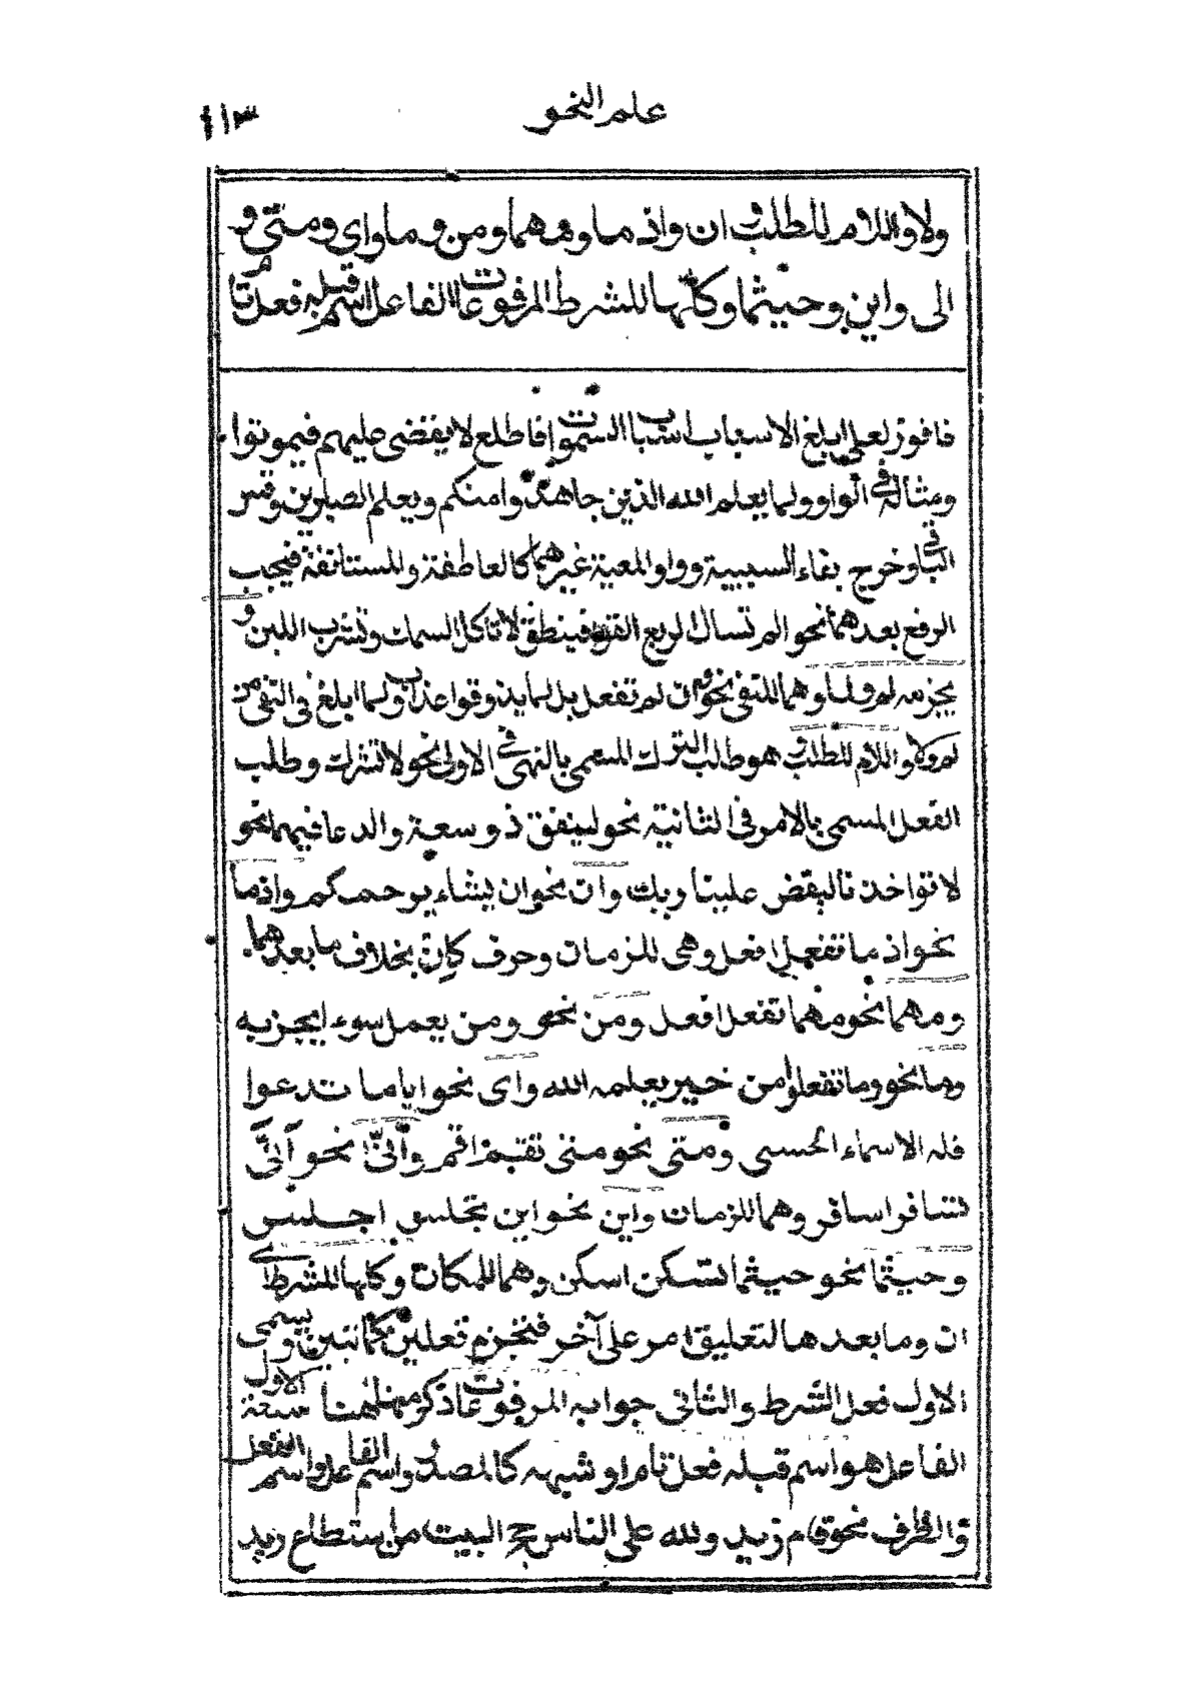 علم النحو
١١٣
ولا واللام للطلب و ان واذ ما ومهما ومن وما واى ومتى و
انى واين وحيثما وكلها للشرط المرفوعات الفاعل اسم قبله فعل تام
فافوز لعلى ابلغ الاسباب اسباب السموات فاطلع لا يقضى عليهم فيموتوا
ومثاله فى الواو ولما يعلم الله الذين جاهدوا منكم ويعلم الصابرين وقس
الباقى وخرج بفاء السببية وواو المعية غيرهما كالعاطفة والمستانفة فيجب
الرفع بعدهما نحو الم تسال الربع القواء فينطق لا تاكل السمك وتشرب اللبن و
يجزمه لم ولما وهما للنفى نحو وان لم تفعل بل لما يذوقوا عذاب ولما ابلغ فى النفى من
لم ولا واللام للطلب هو طلب الترك المسمى بالنهى فى الاولى نحو لا تشرك وطلب
الفعل المسمى بالامر فى الثانية نحو لينفق ذو سعة والدعا فيهما نحو
لا تواخذنا ليقض علينا ربك وان نحو ان يشاء يرحمكم واذ ما
نحو اذ ما تفعل افعل وهى للزمان وحرف كان بخلاف ما بعدهما.
ومهما نحو مهما تفعل افعل ومن نحو ومن يعمل سوءا يجز به
وما نحو وما تفعلوا من خير يعلمه الله واى نحو ايا ما تدعوا
فله الاسماء الحسنى ومتى نحو متى تقم اقم وأنّى نحو أنّى
تسافر اسافر وهما للزمان واين نحو اين تجلس اجلس
وحيثما نحو حيثما تسكن اسكن وهما للمكان وكلها للشرط اى
ان وما بعدها لتعليق امر على آخر فتجزم فعلين ويسمى
الاول فعل الشرط والثانى جوابه المرفوعات ذكر منها هنا سبعة الاول
الفاعل هو اسم قبله فعل تام او شبهه كالمصدر واسم الفاعل واسم الفعل
والظرف نحو قام زيد ولله على الناس حج البيت من استطاع زيد